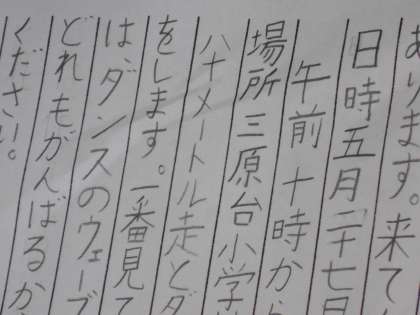 あります。来て
日時五月二十七日
午前十時から
場所三原台小学
八十メートル走とダ
をします。一番見て
は、ダンスのウェーブ
どれもがんばるか
ください。